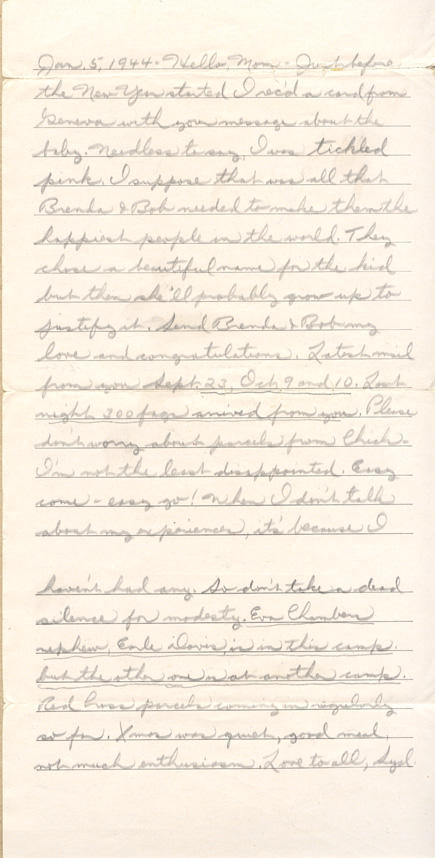 Jan. 5, 1944 - Hello, Mom - Just before
the New Year started I rec'd a card from
Geneva with your message about the
baby. Needless to say, I was tickled
pink. I suppose that was all that
Brenda & Bob needed to make them the
happiest people in the world. They
chose a beautiful name for the kid
but then she'll probably grow up to
justify it. Send Brenda & Bob my
love and congratulations. Latest mail
from you Sept. 23, Oct. 9 and 10. Last
night 300 fags arrived from you. Please
don't worry about parcels from Chich -
I'm not the least disappointed. Easy
come - easy go! When I don't talk
about my experiences, it's because I
haven't had any. So don't take a dead
silence for modesty. Eva Chambers
nephew, Earle Davis is in this camp.
but the other one is at another camp.
Red Cross parcels coming in regularly
so far. Xmas was quiet, good meal,
not much enthusiasm. Love to all,